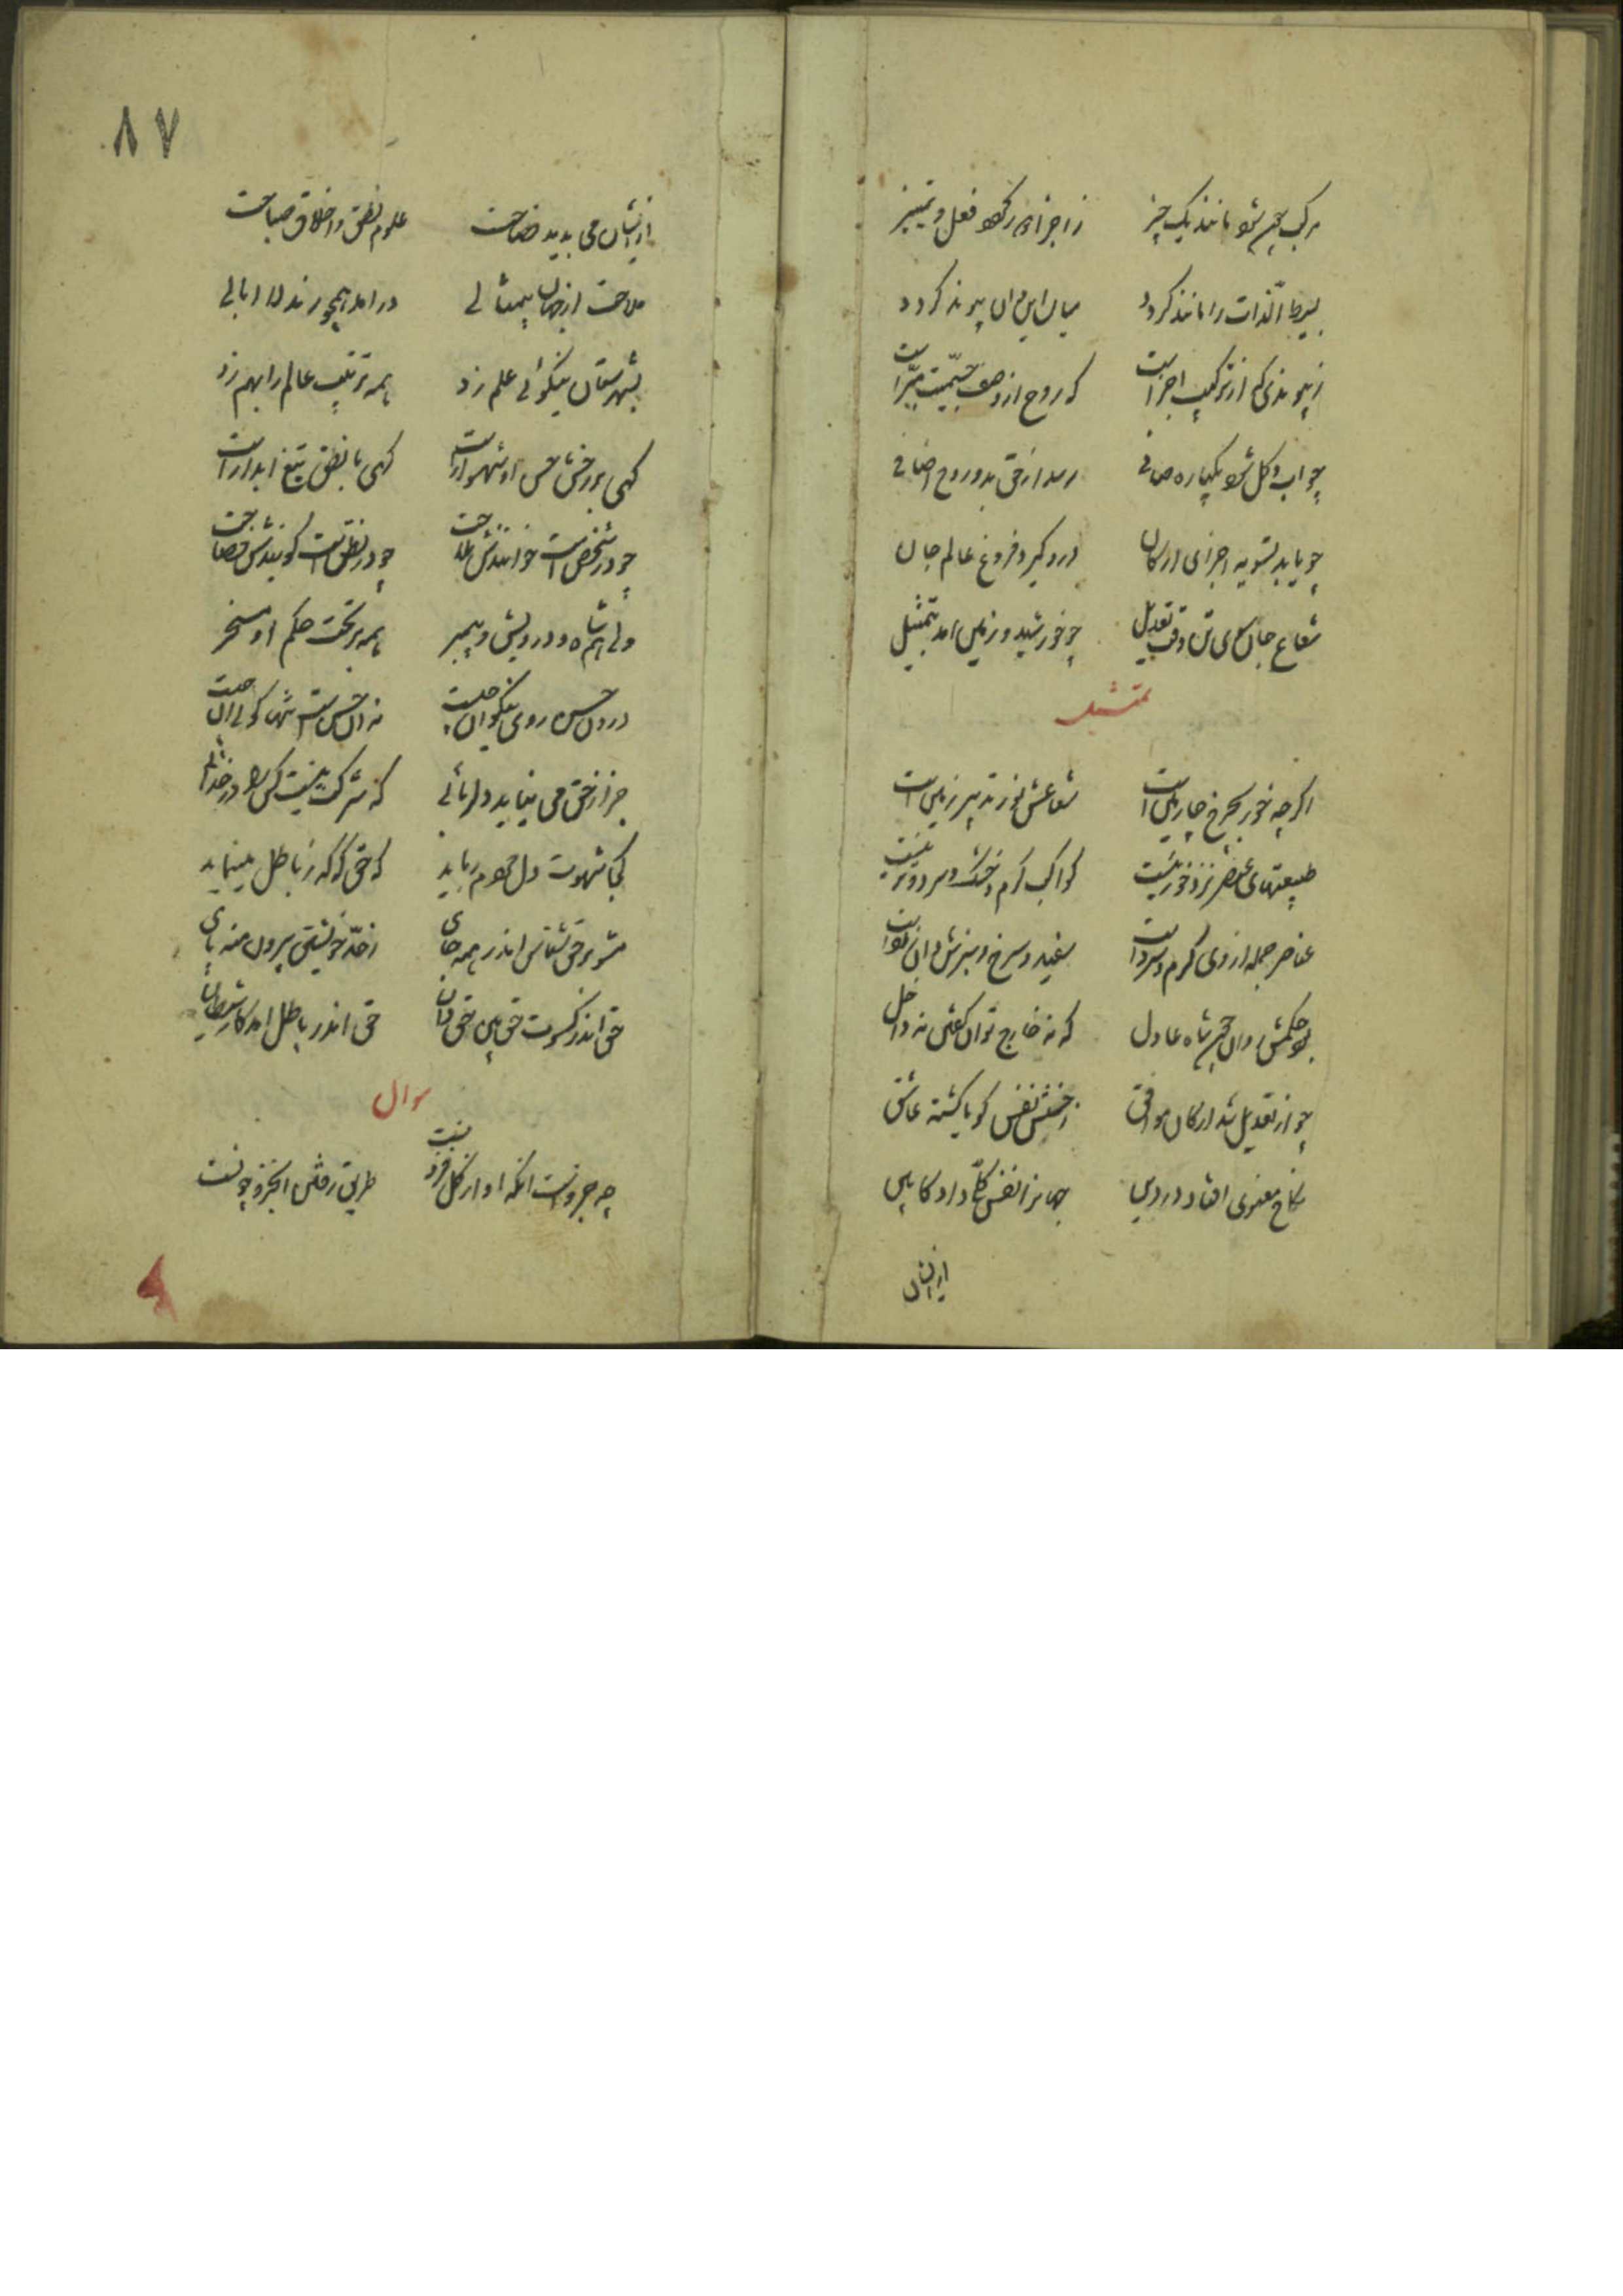 مرکب چون شود مانند یک چیز ز اجزا دور کردد فعل و تمییز
بسیط الذات را مانند کردد میان این و آن پیوند کردد
نه پیوندی که از ترکیب اجزاست که روح از وصف جسمیت مبراست
چو آب و کل شود یکباره صافی رسد از حق بدو روح اضافی
چو یابد تسویه اجزای ارکان درو کیرد فروغ عالم جان
شعاع جان سوی تن وقت تعدیل چو خورشید و زمین آمد بتمثیل
تمثیل
اکرچه خور بچرخ چارمین است شعاعش نور تدبیر زمین است
طبیعتهای عنصر نزد خور نیست کواکب کرم و خشک و سرد و تر نیست
عناصر جمله از وی کرم و سرد است سفید و سرخ و سبز
بود حکمش روان چون شاه عادل که نه خارج توان کفتن نه داخل
چو از تعدیل شد ارکان موافق ز حسنش نفس کویا کشته عاشق
نکاح معنوی افتاد در دین جهان را نفس کلی داد کابین
ازیشان
۸۷
ازیشان می پدید فصاحت علوم نطق و اخلاق صباحت
ملاحت از جهان بیمثالی درآمد همچو رند لاابالی
بشهرستان نیکوئی علم زد همه ترتیب عالم را بهم زد
کهی بر رخش حسن او شهسوار است کهی با نطق تیغ آبدار است
چو در شخص است خوانندش ملاحت چو در نطق است کویندش فصاحت
ولی شاه و درویش و پیمبر همه در تحت حکم او مسخر
درون حسن روی نیکوان چیست نه آن حسن است تنها کوئی آن چیست
جز از حق می نیاید دلربائی که شرکت نیست کس را در خدائی
کجا شهوت دل مردم رباید که حق که که ز باطل مینماید
مؤثر حق شناس اندر همه جای ز حد خویشتن بیرون منه پای
حق اندر کسوت حق بین حق دان حق اندر باطل آمد کار شیطان
سوال
چه جزو است آنکه او از کل فزونست طریق رفتن آن جزو چونست